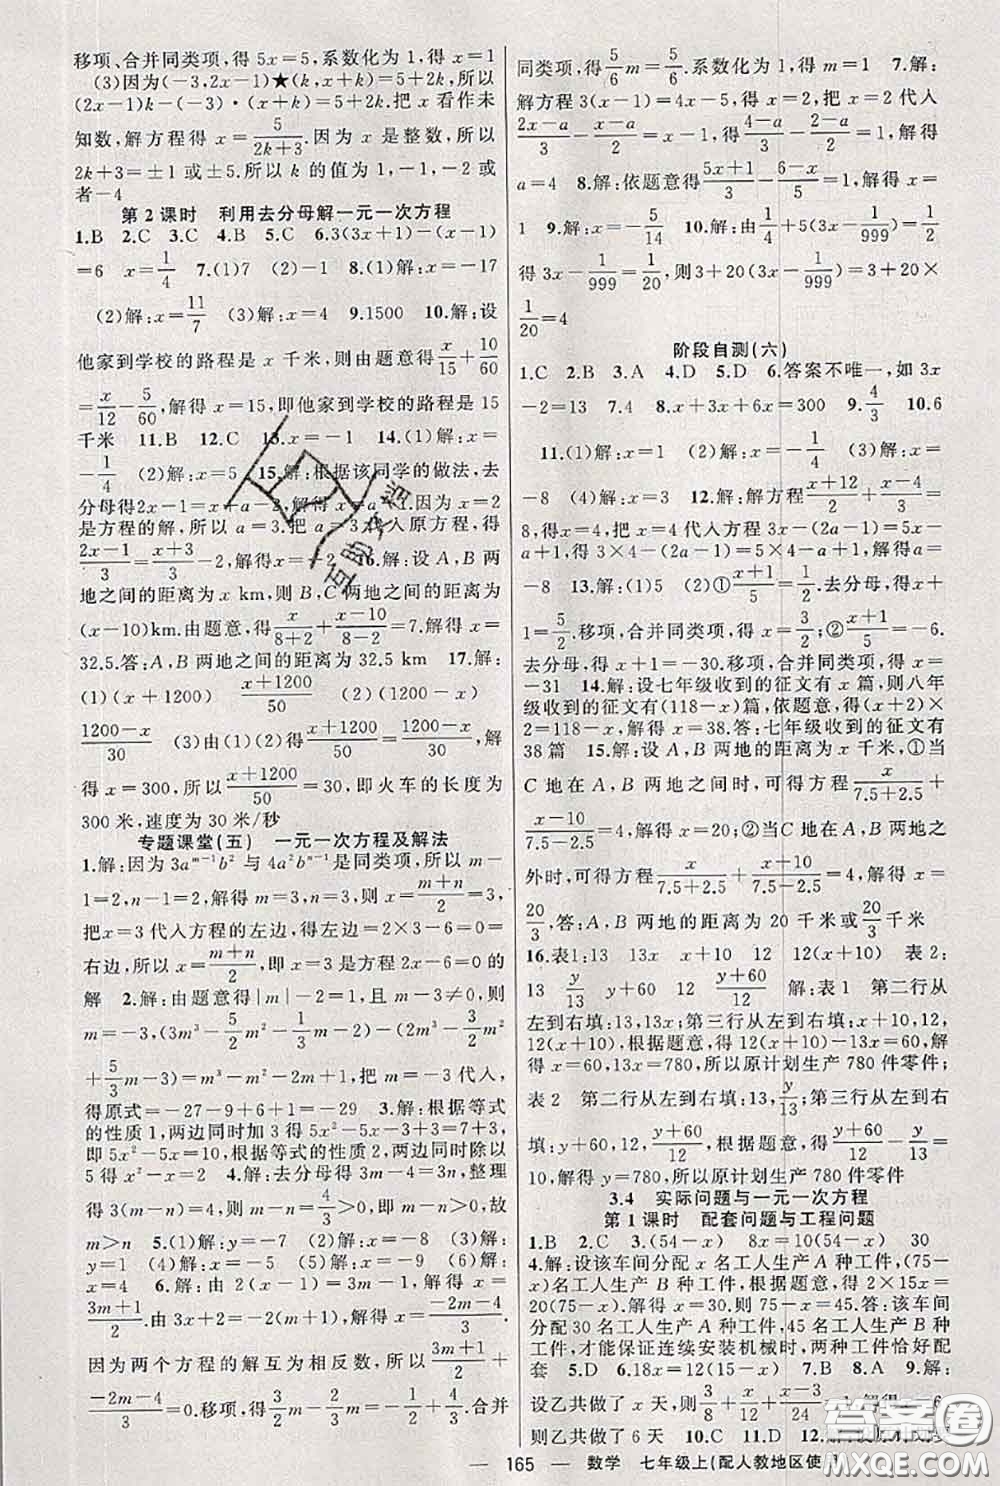 移项、合并同类项,得 5x=5,系数化为 1,得 x=1
(3)因为(-3,2x-1)★(k,x+k)=5+2k,所以
(2x-1)k-(-3)·(x+k)=5+2k.把 x 看作未
知数,解方程得 x=5/(2k+3).因为 x 是整数,所以
2k+3=±1 或±5.所以 k 的值为 1,-1,-2 或
者-4
第 2 课时 利用去分母解一元一次方程
1.B 2.C 3.C 4.B 5.C 6.3(3x+1)-(x-1)
=6 x=1/4 7.(1)7 (2)-1 8.(1)解:x=-17
(2)解:x=11/7 (3)解:x=4 9.1500 10.解:设
他家到学校的路程是 x 千米,则由题意得x/15+10/60
=x/12-5/60,解得 x=15,即他家到学校的路程是 15
千米 11.B 12.C 13.x=-1 14.(1)解:x=
-1/4 (2)解:x=5 15.解:根据该同学的做法,去
分母得 2x-1=x+a-2,解得 x=a-1.因为 x=2
是方程的解,所以 a=3.把 a=3代入原方程,得
(2x-1)/3=(x+3)/3-2,解得 x=-2 16.解:设 A,B 两
地之间的距离为 x km,则 B,C 两地之间的距离为
(x-10)km.由题意,得x/(8+2)+(x-10)/(8-2)=7.解得 x=
32.5.答:A,B 两地之间的距离为 32.5 km 17.解:
(1)(x+1200) (x+1200)/50 (2)(1200-x)
(1200-x)/30 (3)由(1)(2)得(x+1200)/50=(1200-x)/30,解
得 x=300,所以(x+1200)/50=30,即火车的长度为
300 米,速度为 30 米/秒
专题课堂(五) 一元一次方程及解法
1.解:因为 3a^(m-1)b^2 与 4a^2b^(n-1)是同类项,所以 m-
1=2,n-1=2,解得 m=3,n=3,则 x=(m+n)/2=3,
把 x=3 代入方程的左边,得左边=2×3-6=0=
右边,所以 x=(m+n)/2,即 x=3 是方程 2x-6=0 的
解 2.解:由题意得|m|-2=1,且 m-3≠0,则
m=-3,(3m^3-5/2m^2-1/3m+1)-(2m^3-2m-3/2m^2
+5/3m-1)=m^3-m^2-m+1,把 m=-3 代入,
得原式=-27-9+6+1=-29 3.解:根据等式
的性质 1,两边同时加 3 得 5x^2-5x-3+3=7+3,
即 5x^2-5x=10,根据等式的性质 2,两边同时除以
5 得 x^2-x=2 4.解:去分母得 3m-4=3n,整理
得 3(m-n)=4,所以 m-n=4/3>0,m-n>0,故
m>n 5.(1)解:y=-7 (2)解:x=-8 (3)解:
y=1 (4)解:x=5 (5)解:x=-8 (6)解:
x=3 6.解:由 2(x-1)=3m-1,解得 x=
(3m+1)/2.由 3x+2=-2(m+1),解得 x=(-2m-4)/3.
因为两个方程的解互为相反数,所以(3m+1)/2+
(-2m-4)/3=0.移项,得(3m+1)/2=(2m+4)/3,合并
同类项,得5/6m=5/6.系数化为 1,得 m=1 7.解:
解方程 3(x-1)=4x-5,得 x=2,把 x=2 代入
(2x-a)/3-(x-a)/2=1,得(4-a)/3-(2-a)/2=1,解得
a=4 8.解:依题意得(5x+1)/3-(6-x)/1=1,解得 x=
1/1 9.解:x=-5/14 10.解:由 3(x-1/999)=1/1,解
得 3x-1/999=1/20,则 3+20(3x-1/999)=3+20×
1/20=4
阶段自测(六)
1.C 2.B 3.A 4.D 5.D 6.答案不唯一,如 3x
-2=13 7.4 8.x+3x+6x=300 9.4/3 10.6
11.(1)解:x=1 (2)解:x=5 (3)解:x=
-8 (4)解:x=3 12.解:解方程(x+12)/2+(x-4)/3=
8,得 x=4,把 x=4 代入方程 x-(2a-1)=5x-
a+1,得 3×4-(2a-1)=5×4-a+1,解得 a=
-8 13.解:(1)5 (2)①(x+1)/5=1/2.去分母,得 x+
1=5/2.移项,合并同类项,得 x=3/2;②(x+1)/5=-6.
去分母,得 x+1=-30.移项,合并同类项,得 x=
-31 14.解:设七年级收到的征文有 x 篇,则八年
级收到的征文有(118-x)篇,依题意,得(x+2)×
2=118-x,解得 x=38.答:七年级收到的征文有
38 篇 15.解:设 A,B 两地的距离为 x 千米,①当
C 地在 A,B 两地之间时,可得方程x/(7.5+2.5)+
(x-10)/(7.5-2.5)=4,解得 x=20;②当C 地在 A,B 两地之
外时,可得方程x/(7.5+2.5)+(x+10)/(7.5-2.5)=4,解得 x=
20/3,答:A,B 两地的距离为 20 千米或20/3千米
16.表1:13 13x x+10 12 12(x+10) 表 2:
13 y/13 y+60 12 (y+60)/12 解:表1 第二行从
左到右填:13,13x;第三行从左到右填:x+10,12,
12(x+10),根据题意,得 12(x+10)-13x=60,解
得 x=60,13x=780,所以原计划生产 780 件零件;
表 2 第二行从左到右填:13,y/13;第三行从左到右
填:y+60,12,(y+60)/12,根据题意,得(y+60)/12-y/13=
1,解得 y=780,所以原计划生产 780 件零件
3.4 实际问题与一元一次方程
第 1 课时 配套问题与工程问题
1.B 2.C 3.(54-x) 8x=10(54-x) 30
4.解:设该车间分配 x 名工人生产 A 种工件,(75-
x)名工人生产 B 种工件,根据题意,得 2×15x=
20(75-x).解得 x=30.则 75-x=45.答:该车间
分配 30 名工人生产 A 种工件,45 名工人生产 B 种
工件,才能保证连续安装机械时,两种工件恰好配
套 5.D 6.18x=12(15-x) 7.B 8.A 9.解:
设乙共做了 x 天,则3/8+x/12+(x-3)/24=1,解得 x=6
则乙共做了 6 天 10.C 11.D 12.解:
— 165 — 数学 七年级上(配人教地区使用)
互助文档
答案卷